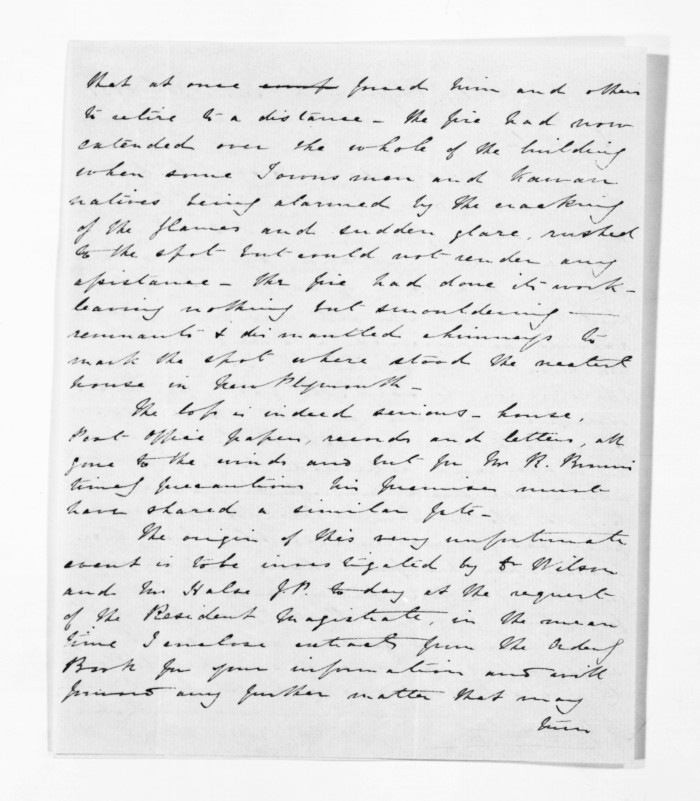 that at once forced him and others
to retire to a distance - the fire had now
extended over the whole of the building
when some Townsmen and Kawau
natives being alarmed by the cracking
of the flames and sudden glare, rushed
to the spot but could not render any
assistance - the fire had done its work -
leaving nothing but smouldering —
remnants & dismantled chimneys to
mark the spot where stood the neatest
house in New Plymouth -
The loss is indeed serious - house,
Post Office papers, records and letters, all
gone to the winds and but for Mr R. Brown's
timely precautions his premises must
have shared a similar fate -
The origin of this very unfortunate
event is to be investigated by Dr Wilson
and Mr Halse J.P. to day at the request
of the Resident Magistrate, in the mean
time I enclose extracts from the Orderly
Book for your information and will
forward any further matter that may
turn